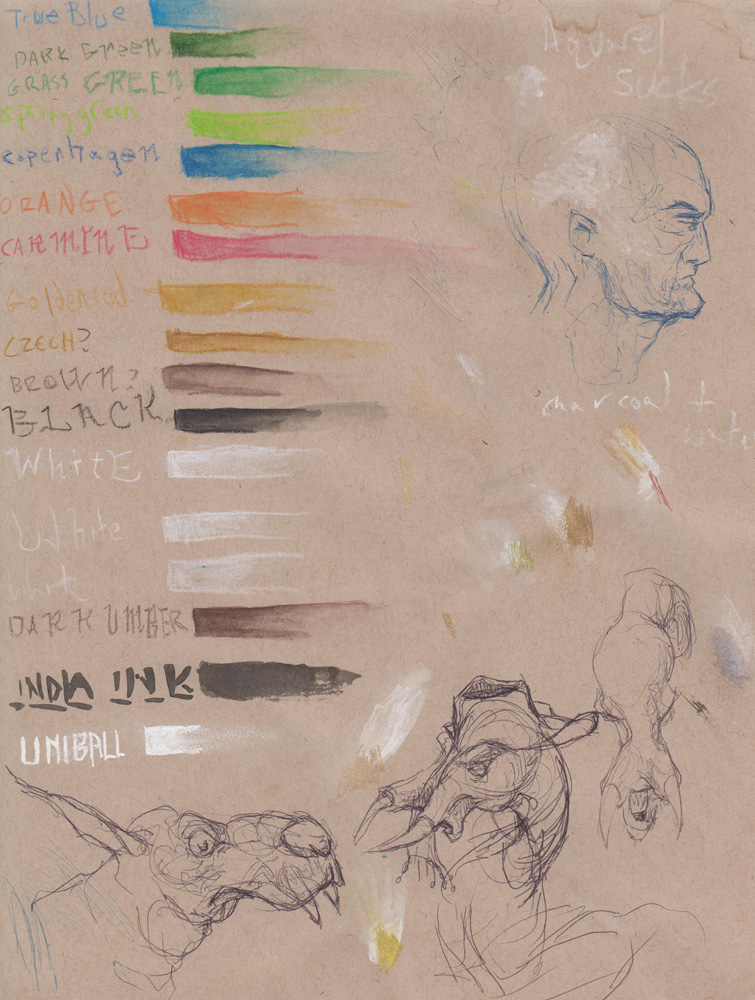 True Blue
DARK GREEN
GRASS GREEN
Spring green
copenhagen
ORANGE
CARMINE
Goldenrod
CZECH?
BROWN?
BLACK
WHITE
White
white
DARK UMBER
INDIA INK
UNIBALL
Sucks
charcoal +